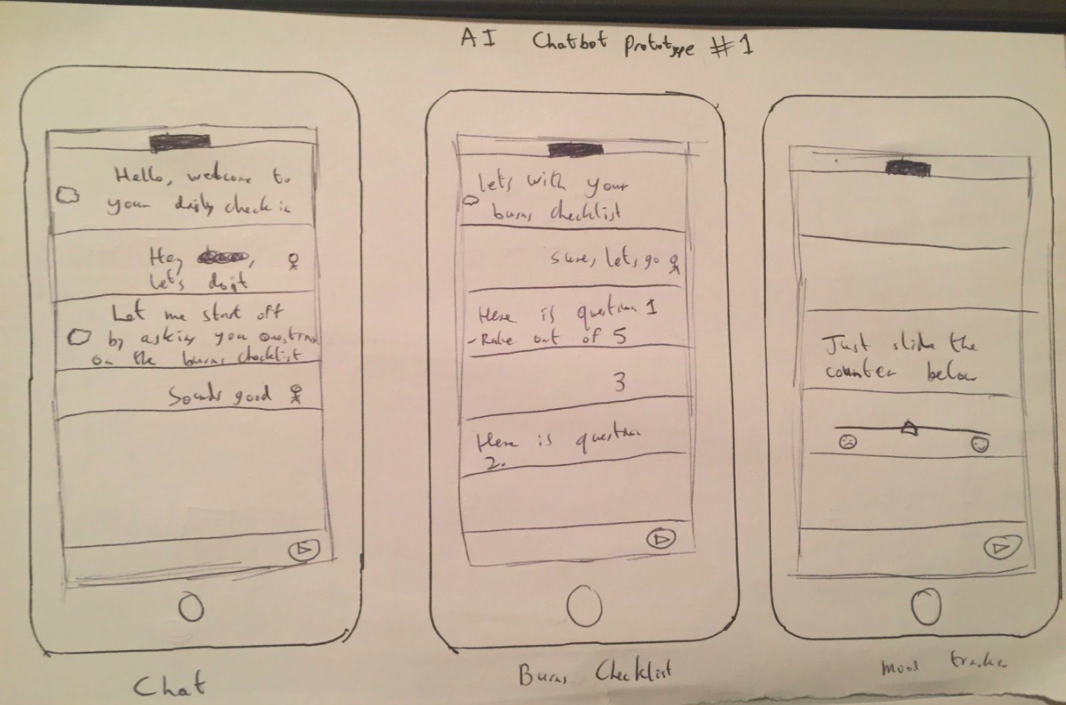 AI Chatbot Prototype #1
Hello, welcome to
your daily check in
Hey,
let's do it
Let me start off
by asking you question
on the burns checklist
Sounds good
Chat
lets with your
burns checklist
sure, lets go
Here is question 1
- Rate out of 5
3
Here is question
2.
Burns Checklist
Just slide the
counter below
mood tracker